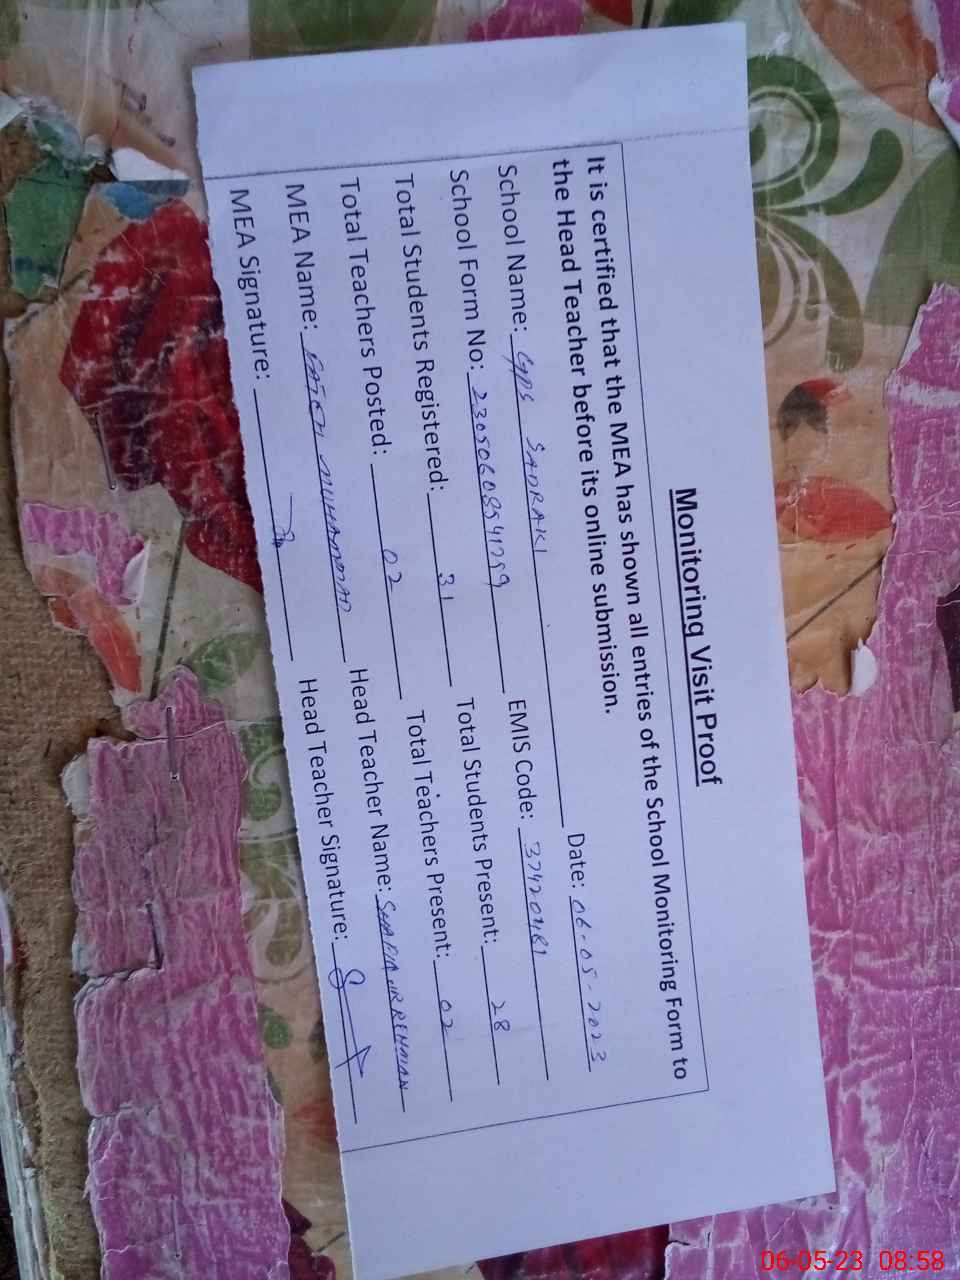 Monitoring Visit Proof
It is certified that the MEA has shown all entries of the School Monitoring Form to
the Head Teacher before its online submission.
School Name: GPS SADRAKI Date: 06-05-2023
School Form No: EMIS Code: 37420481
Total Students Registered: 31 Total Students Present: 28
Total Teachers Posted: 02 Total Teachers Present: 02
MEA Name: FATEH MUHAMMAD Head Teacher Name: REHMAN
MEA Signature: Head Teacher Signature:
06-05-23 08:58